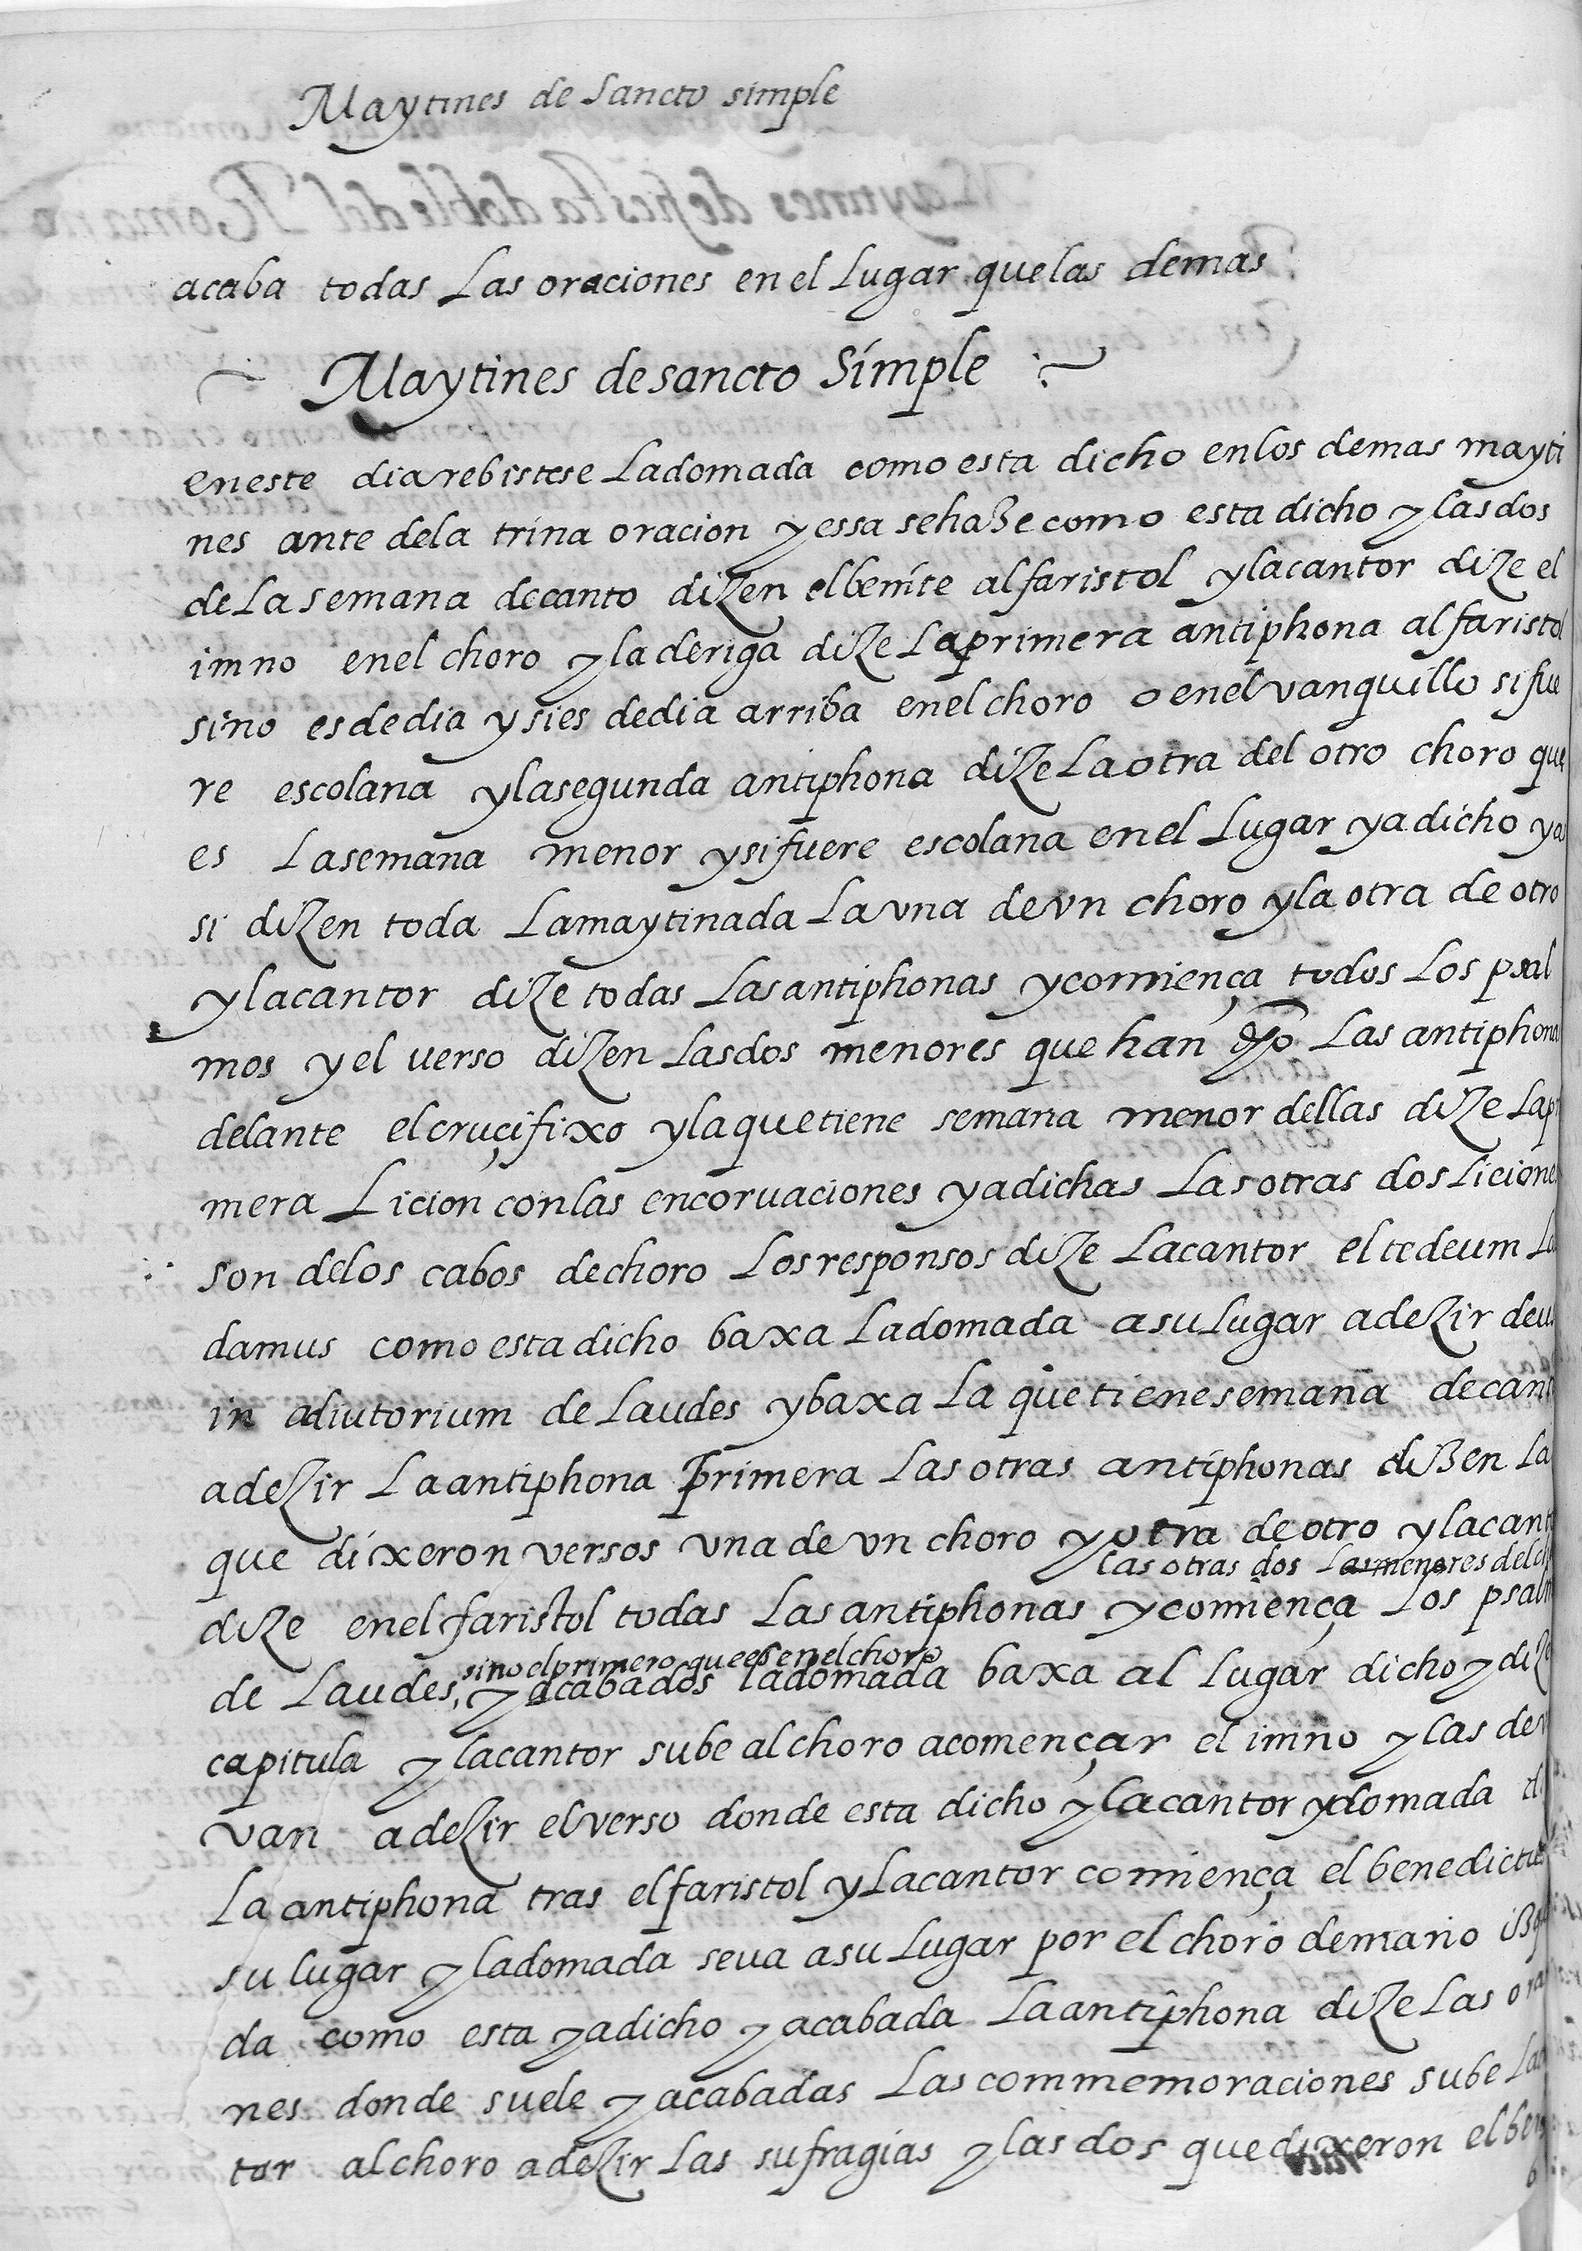 Maytines de sancto simple
acaba todas las oraciones en el lugar que las demas
Maytines de sancto Simple
en este dia rebistese ladomada como esta dicho en los demas mayti
nes ante dela trina oracion y essa sehaze como esta dicho y las dos
de la semana de canto dizen el benite al faristol y la cantor dize el
imno en el choro y la deriga dize la primera antiphona al faristol
sino es de dia y si es de dia arriba en el choro o en el vanquillo si fue
re escolana y la segunda antiphona dize la otra del otro choro que
es la semana menor y si fuere escolana en el lugar ya dicho y a
si dizen toda la maytinada la vna de vn choro y la otra de otro
y la cantor dize todas las antiphonas y comiença todos los psal
mos y el verso dizen las dos menores que han dho las antiphona
delante el cruçifixo y la que tiene semana menor dellas dize la pr
mera Licion con las encoruaciones ya dichas las otras dos licione
son delos cabos de choro los responsos dize la cantor el tedeum la
damus como esta dicho baxa ladomada a su lugar a dezir deus
in adiutorium de laudes y baxa la que tiene semana de cant
a dezir la antiphona primera las otras antiphonas dizen la
que dixeron versos una de vn choro y otra de otro y la cant
las otras dos las menores del ch
dize en el faristol todas las antiphonas y comiença los psalm
sino el primero que es en el choro
de laudes, y acabados ladomada baxa al lugar dicho y dize
capitula y la cantor sube al choro a començar el imno y las de v
van a dezir el verso donde esta dicho y la cantor y domada di
la antiphona tras el faristol y la cantor comiença el benedictus
su lugar y ladomada se va a su lugar por el choro de mano izq
da como esta ya dicho y acabada la antiphona dize las ora
nes donde suele y acabadas las commemoraciones sube la
tor al choro a dezir las sufragias y las dos que dixeron el ben